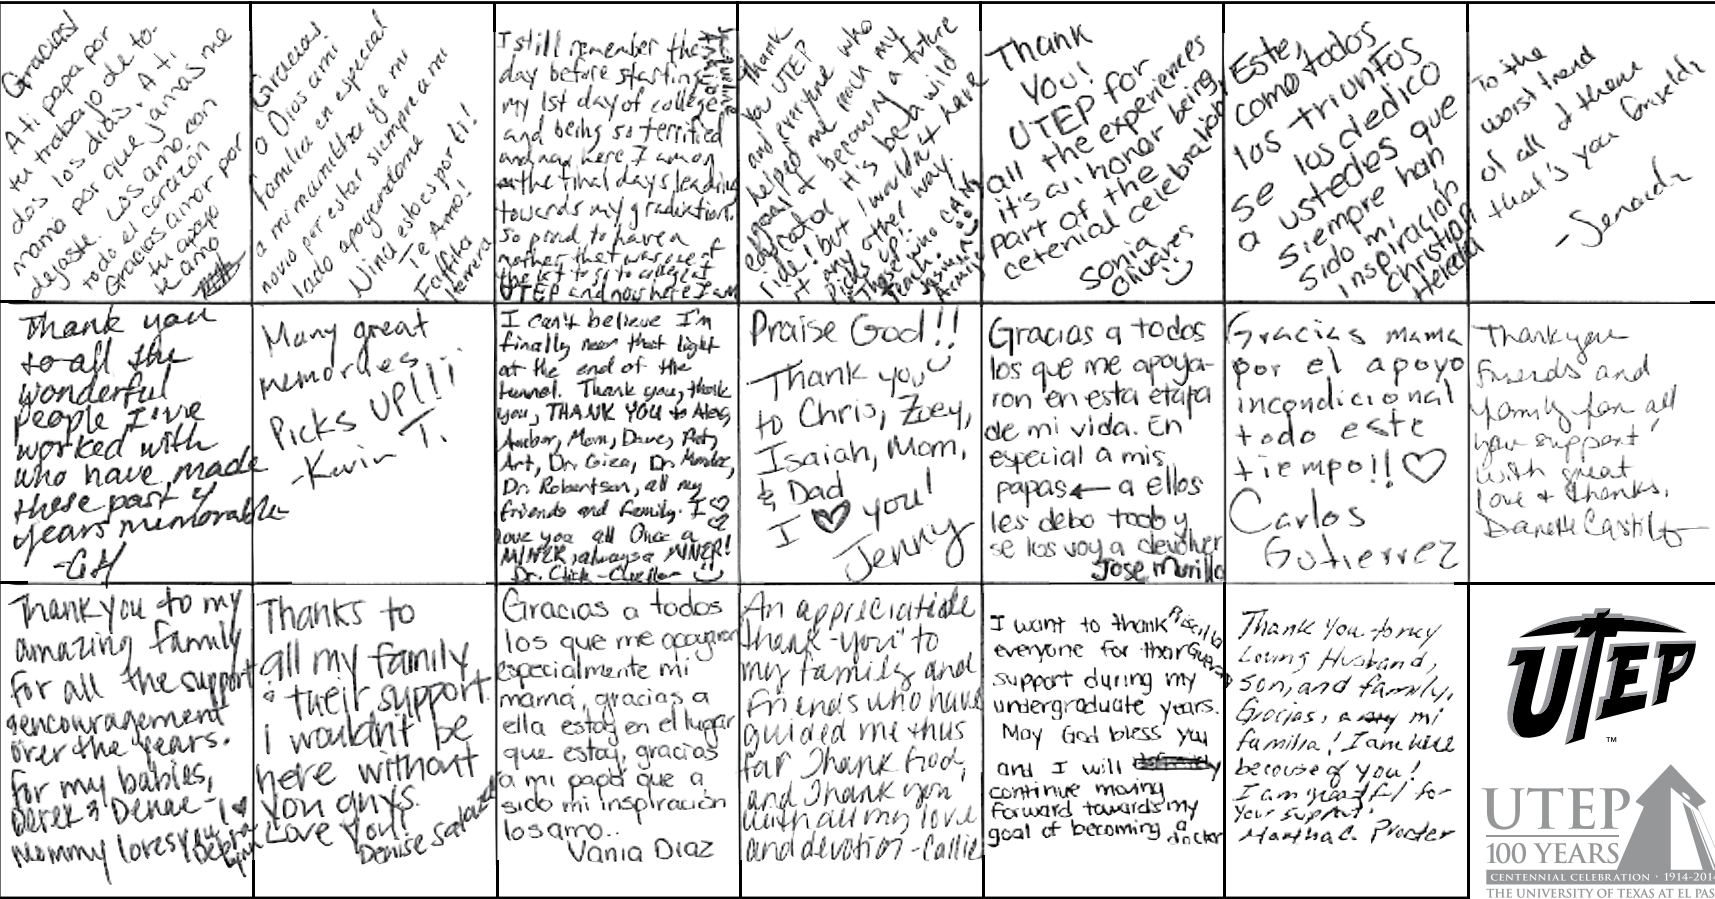 Gracias!
A ti papa por
tu trabajo de to-
dos los dias. A ti
mama por que jamas me
dejaste. Los amo con
todo el corazón
Gracias amor por
tu apoyo
te amo
Gracias!
a Dios a mi
familia en especial
a mi mamithza y a mi
novio por estar siempre a mi
lado apoyandome
Nina esto es por ti!
Te Amo!
Herrera
I still remember the
day before starting
my 1st day of college
and being so terrified
and now here I am on
the final days leading
towards my graduation.
So proud to have a
mother that was one of
the 1st to go to college at
UTEP and now here I am
Thank
you UTEP
and everyone who
helped me reach my
goal of becoming a future
educator. It's be a wild
ride! but I wouldn't have
it any other way.
Picks up!
"Those who CAN,
Teach." Jasmin
Thank
You!
UTEP for
all the experiences
it's an honor being
part of the
cetenial celebration
Sonia
Olivares
Este,
como todos
los triunfos
se los dedico
a ustedes que
siempre han
sido mi
inspiración
Christian
Heredia
To the
worst friend
of all of them
that's you Griselda
-Senaida
Thank you
to all the
wonderful
people I've
worked with
who have made
these past 4
years memorable
-GH
Many great
memories
Picks UP!!!
-Kevin T.
I can't believe I'm
finally near that light
at the end of the
tunnel. Thank you, thank
you, THANK YOU to Alex,
Amber, Mom, Dave, Pat,
Art, Dr. Giza, Dr. Mendez,
Dr. Robertson, all my
friends and family. I
love you all Once a
MINER, always a MINER!
Dr. Click-Cuellar
Praise God!!
Thank you
to Chris, Zoey,
Isaiah, Mom,
& Dad
I ♡ you!
Jenny
Gracias a todos
los que me apoya-
ron en esta etapa
de mi vida. En
especial a mis
papas ← a ellos
les debo todo y
se los voy a devolver
Jose Murillo
Gracias mama
por el apoyo
incondicional
todo este
tiempo!! ♡
Carlos
Gutierrez
Thank you
friends and
family for all
your support!
with great
love & thanks,
Danette Castillo
Thank you to my
amazing family
for all the support
& encouragement
over the years.
For my babies,
Derek & Denae - I ♥
Mommy loves you!
Thanks to
all my family
& their support.
i wouldnt be
here without
you guys.
Love You!
Denise Salazar
Gracias a todos
los que me apoyaron
especialmente mi
mamá, gracias a
ella estoy en el lugar
que estoy, gracias
a mi papá que a
sido mi inspiración
los amo..
Vania Diaz
An appreciatible
"thank-you" to
my family and
friends who have
guided me thus
far Thank God,
and Thank you
with all my love
and devotion - Callie
I want to thank
everyone for thier
support during my
undergraduate years.
May God bless you
and I will
continue moving
forward towards my
goal of becoming a
doctor
Priscilla
Guevara
Thank You to my
Loving Husband,
son, and family.
Gracias, a mi
familia! I am here
because of you!
I am grateful for
your support!
Martha C. Procter
UTEP
™
UTEP
100 YEARS
CENTENNIAL CELEBRATION · 1914-201
THE UNIVERSITY OF TEXAS AT EL PAS